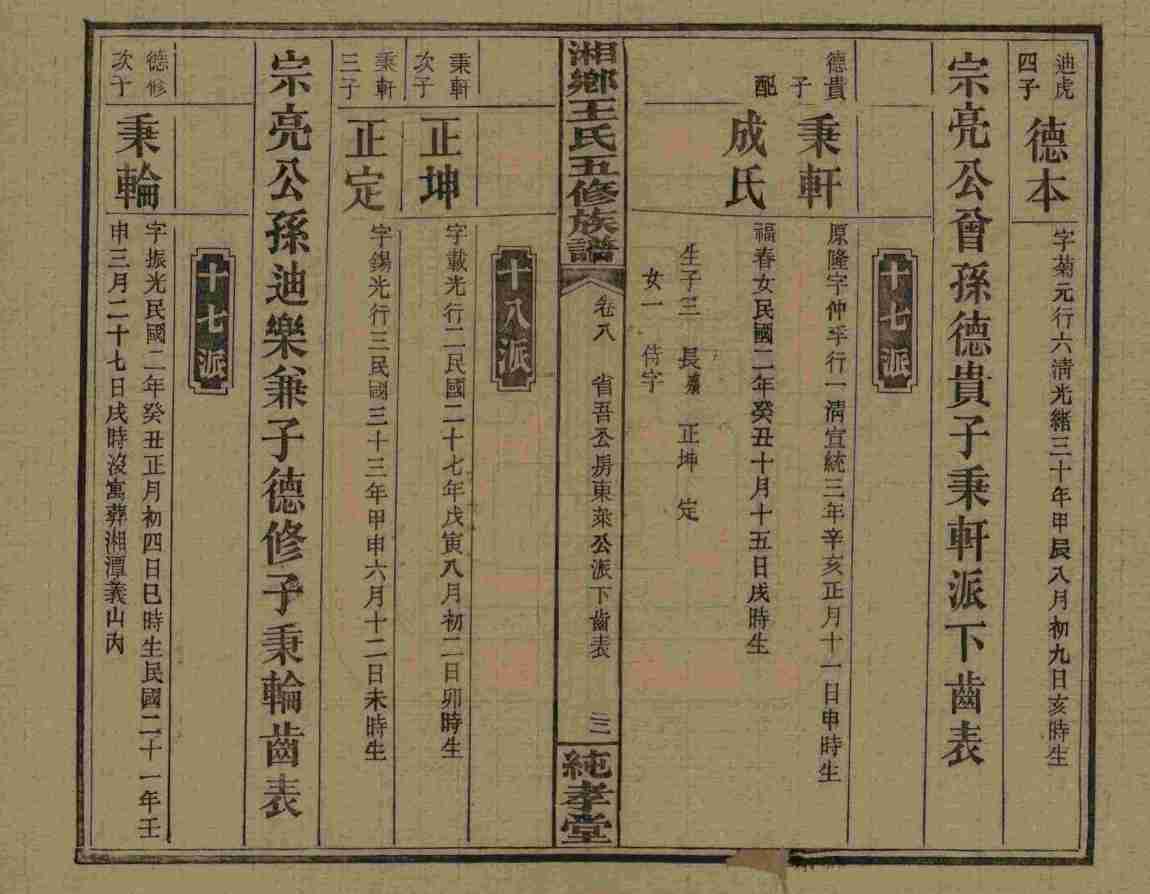 迪虎
四子
德本
字菊元行六清光緒三十年甲辰八月初九日亥時生
宗亮公曾孫德貴子秉軒派下齒表
十七派
德貴
子
秉軒
原隆字仲平行一清宣統三年辛亥正月十一日申時生
配
成氏
福春女民國二年癸丑十月十五日戌時生
生子三 長殤 正坤 定
女一 待字
湘鄉王氏五修族譜
卷八 省吾公房東萊公派下齒表 三
純孝堂
十八派
秉軒
次子
正坤
字載光行二民國二十七年戊寅八月初二日卯時生
秉軒
三子
正定
字錫光行三民國三十三年甲申六月十二日未時生
宗亮公孫迪樂兼子德修子秉輪齒表
十七派
德修
次子
秉輪
字振光民國二年癸丑正月初四日巳時生民國二十一年壬
申三月二十七日戌時沒寓葬湘潭義山內